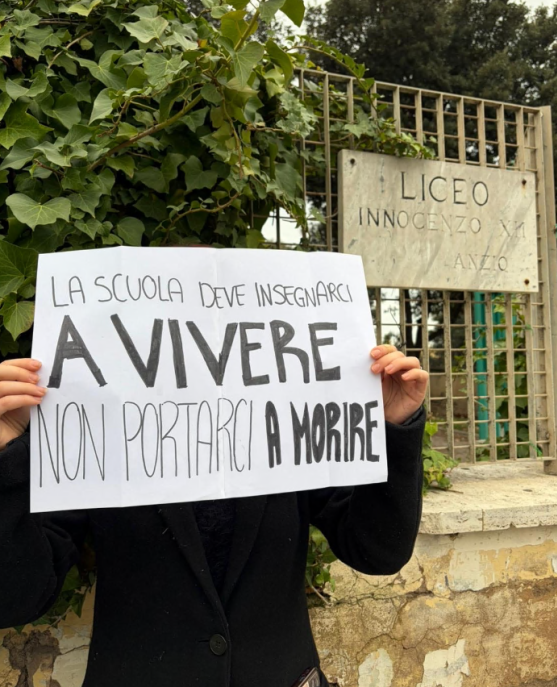 LA SCUOLA DEVE INSEGNARCI
A VIVERE
NON PORTARCI A MORIRE
LICEO
INNOCENZO XII
ANZIO